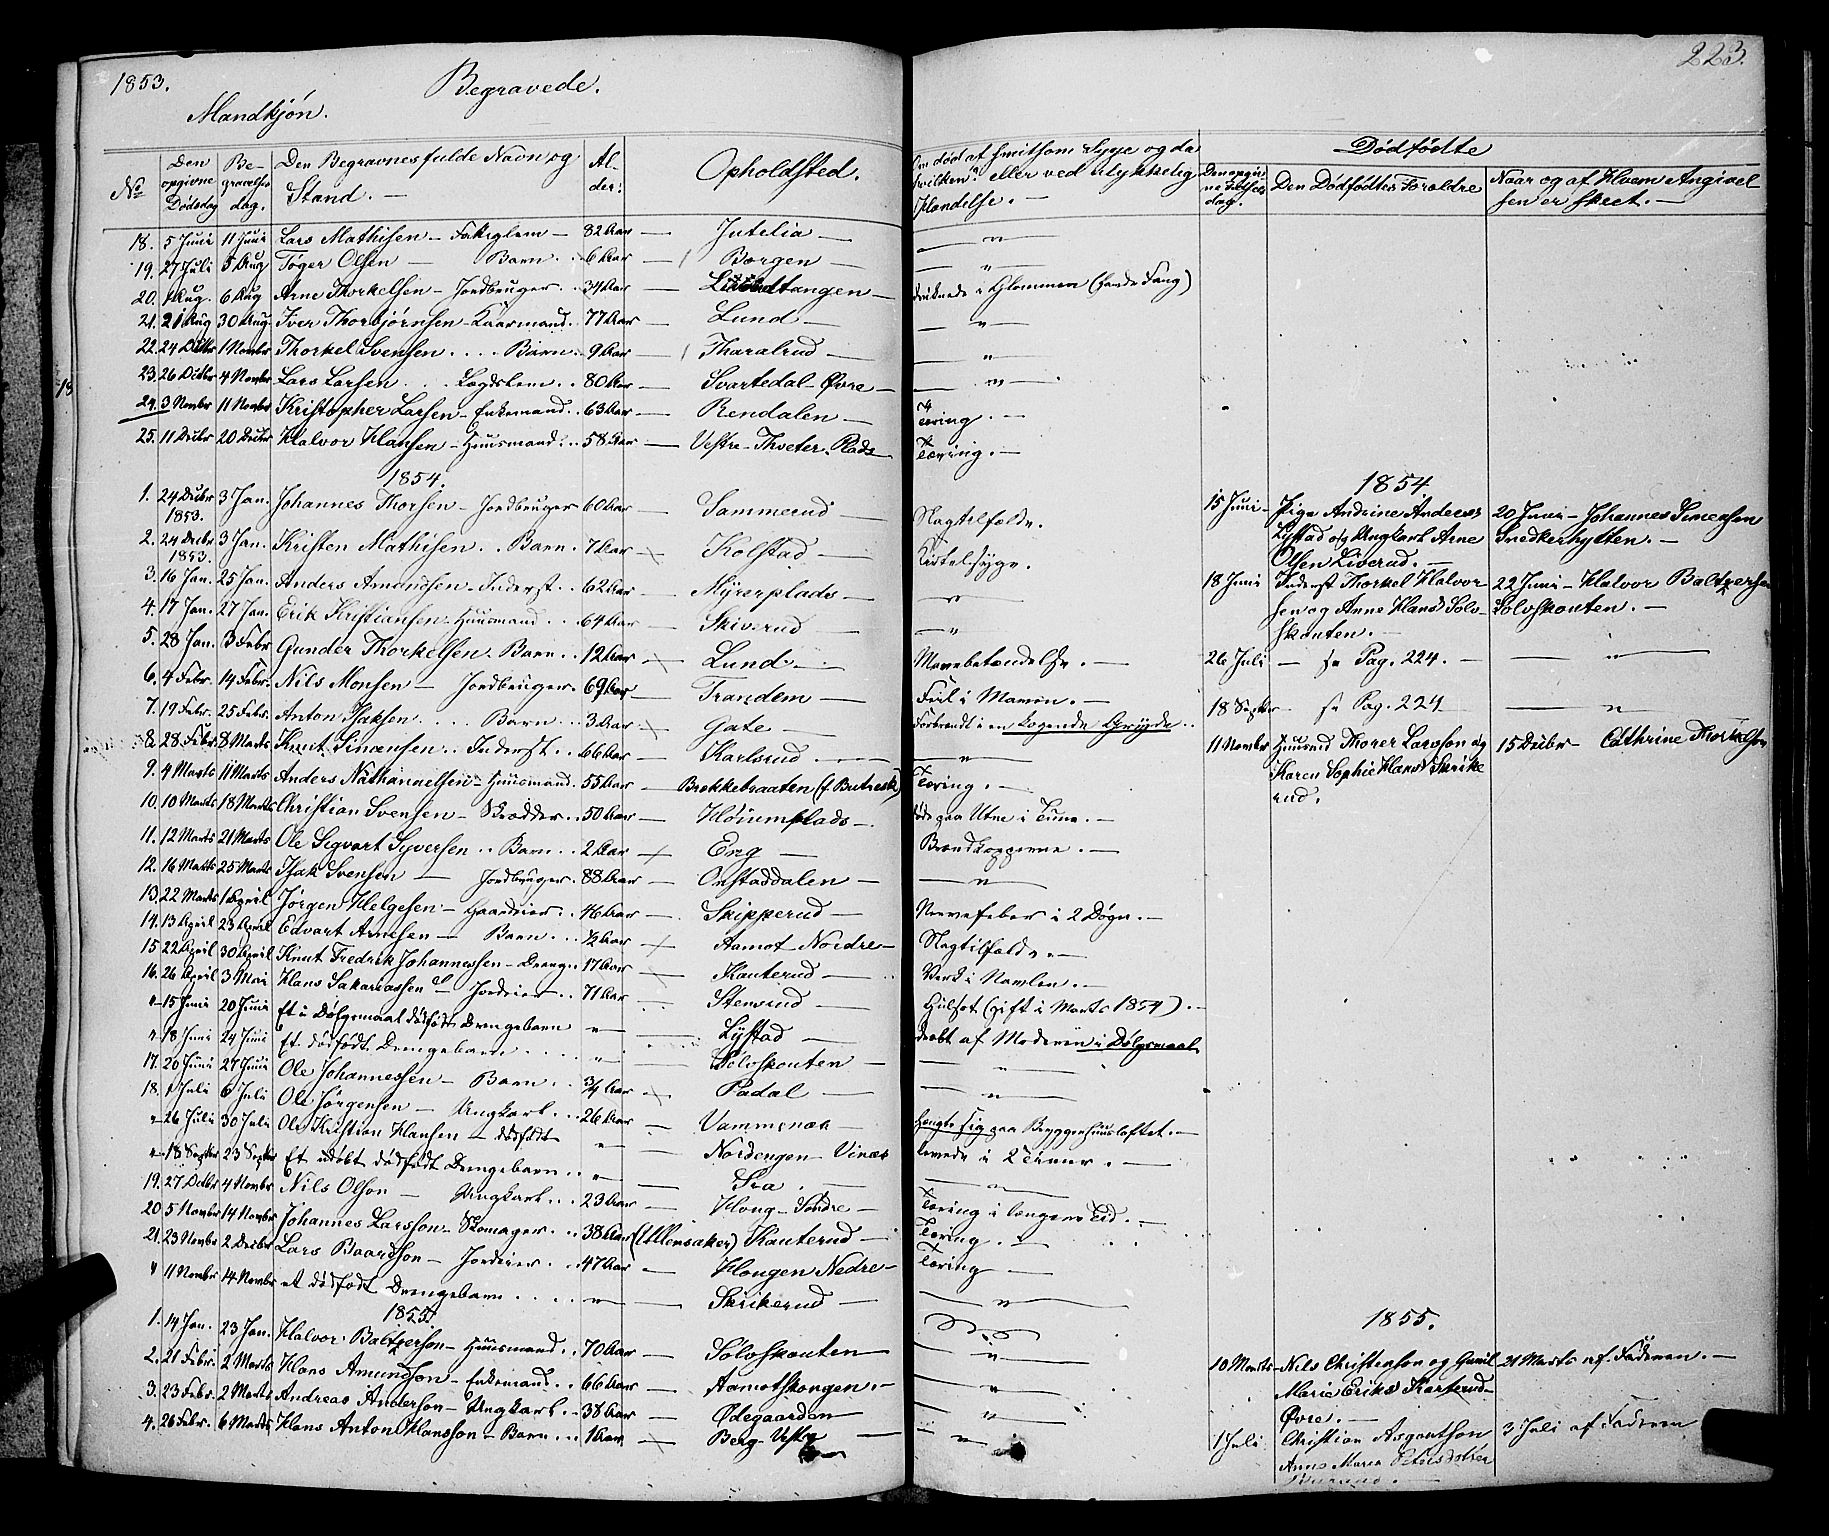 1853.
Begravede.
223.
Mandkjøn.
No
Den opgivne Dødsdag
Begravelses dag.
Den Begravnes fulde Navn og Stand. —
Alder:
Opholdsted.
Om død af smitsom Syge og da hvilken? eller ved ulykkelig Hændelse. —
Dødfødte
Den Dødfødtes Forældre
Naar og af Hvem Angivelsen er skeet. —
18. 5 Juni 11 Juni Lars Mathisen — 82 Aar — Jutelia — — " —
19. 27 Juli 5 Aug Tøger Olsen — Barn .. 6 Aar — Borgen — — " —
20. 1 Aug. 6 Aug Arne Thorkelsen — Jordbruger .. 34 Aar — druknede i Glommen
21. 21 Aug 30 Aug. Iver Thorbjørnsen — Kaarmand .. 77 Aar — Lund — — " —
22. 24 Octbr 1 Novbr Thorkel Svensen .... Barn . 9 Aar — Tharalrud — — " —
23. 26 Octbr 4 Novbr Lars Larsen .... Lægdslem .. 80 Aar — Svartedal — Øvre — — " —
24. 3 Novbr 11 Novbr Kristopher Larsen — Enkemand .. 63 Aar — Rendalen — Tæring. —
25. 11 Decbr 20 Decbr Halvor Hansen — Huusmand .. 58 Aar — Vestre-Thveter-Plads — Tæring. —
1854.
1. 24 Decbr 1853. 3 Jan. Johannes Thorsen — Jordbruger 60 Aar — Sammerud — Slagtilfælde.
2. 24 Decbr 1853. 3 Jan. Kristen Mathisen .. Barn . 7 Aar — Kolstad — Kirtelsyge.
3. 16 Jan. 25 Jan. Anders Amundsen — Inderst .. 62 Aar — Myrerplads — — " —
4. 17 Jan. 27 Jan. Erik Kristiansen — Huusmand .. 64 Aar — Skiverud — — " —
5. 28 Jan. 3 Febr Gunder Thorkelsen — Barn .. 12 Aar — Lund — Mavebetændelse. —
6. 4 Febr. 14 Febr. Nils Monsen — Jordbruger . 69 Aar — Trandem — Feil i Maven. —
7. 19 Febr. 25 Febr. Anton Isaksen .... Barn .. 3 Aar — Gate — Forbrændt i en kogende Gryde ..
8. 28 Febr 8 Marts Knut Simensen .. Inderst .. 66 Aar — Karlsrud — — " —
9. 4 Marts 11 Marts Anders Nathanaelsen — Huusmand . 55 Aar — Brekkebraaten Tæring. —
10. 10 Marts 18 Marts Christian Svensen — Skrædder .. 50 Aar — Høiumplads — døde paa Utne i Tune. —
11. 12 Marts 21 Marts Ole Sigvart Syversen .. Barn .. 2 Aar — Eng —
12. 16 Marts 25 Marts Isak Svensen — Jordbruger . 88 Aar — Onstaddalen — — " —
13. 22 Marts 1 April Jørgen Helgesen — Gaardeier .. 46 Aar — Skipperud — Nervefeber i 2 Døgn. —
14. 13 April 23 April Edvart Arnesen — Barn ... ½ Aar — Aamot Nordre — Slagtilfælde. —
15. 22 April 30 April Knut Fredrik Johannessen — Dreng .. 17 Aar — Kauterud — Værk i Navlen. —
16. 26 April 3 Mai Hans Sakariassen — Jordeier .. 71 Aar — Stensrud — Gulsot (gift i Marts 1854). —
" 15 Juni 20 Juni Et i Dølgsmaal dødfødt Drengebarn — " — Lystad — dræbt af Moderen i Dølgsmaal.
" 18 Juni 24 Juni Et dødfødt Drengebarn .... — " — Solvskouten — — " —
17. 20 Juni 27 Juni Ole Johannessen — Barn .. ¾ Aar — Padal — — " —
18. 1 Juli 6 Juli Ole Jørgensen — Ungkarl ... 26 Aar — Vammenæs — hængte sig paa Bryggerhuusloftet. —
" 26 Juli 30 Juli Ole Kristian Hansen — dødfødt — " — Nordengen — Vinæs levede i 2 Timer. —
" 18 Septbr 23 Septbr Et udøbt dødfødt Drengebarn .. — " — — " —
19. 27 Octbr 4 Novbr Nils Olson — Ungkarl ... 23 Aar — Houg — Søndre — Tæring i længere Tid. —
20. 5 Novbr 14 Novbr Johannes Larsson — Skomager .. 38 Aar (Ullensaker) Kauterud — Tæring. —
21. 23 Novbr 2 Decbr Lars Baardson — Jordeier .. 47 Aar — Hougen Nedre — Tæring —
" 11 Novbr 14 Novbr et dødfødt Drengebarn .... — " — Skrikerud — — " —
1855.
1. 14 Jan. 23 Jan. Halvor Baltzerson — Huusmand . 70 Aar — Solvskouten — — " —
2. 21 Febr. 2 Marts Hans Amundson — Enkemand .. 66 Aar — Aamotskongen. — — " —
3. 23 Febr. 2 Marts Andreas Anderson — Ungkarl .. 38 Aar — Ødegaarden — " —
4. 26 Febr. 6 Marts Hans Anton Hansson — Barn ... 1 Aar — Berg — Vestre — — " —
1854
15 Juni — Pige Andrine Anders
Lystad og Ungkarl Arne
Olsen Liverud. —
20 Juni — Johannes Simensen
Snedkerhytten. —
18 Juni Inderst Thorkel Halvor-
sen og Anne Hansd Solv-
skouten. —
22 Juni — Halvor Baltzersen
Solvskouten. —
26 Juli — se Pag. 224. — — " —
18 Septbr — se Pag. 224 — " —
11 Novbr Huusmd Thorer Larsson og
Karen Sophie Hansd Skrike
rud.
15 Decbr — Cathrine Thorkelsen
1855.
10 Marts — Nils Christenson og
Marie Eriksd
Øvre. —
21 Marts af Faderen. —
1 Juli Christian Asgautson
Anne Maria Petersdotter
3 Juli af Faderen